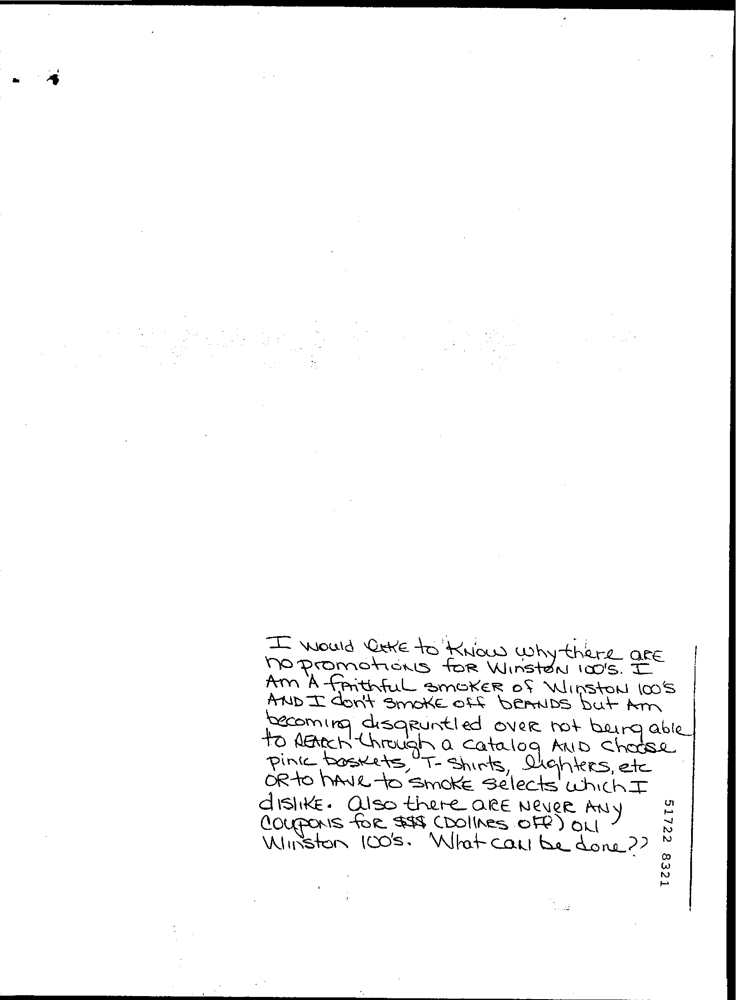 I would like to know why there are
no promotions for Winston 100's. I
Am A faithful smoker of Winston 100's
AND I don't smoke off brands but Am
becoming disgruntled over not being able
to reach through a catalog AND choose
pinic baskets, T-shirts, lighters, etc
OR to have to smoke selects which I
dislike. Also there are never any
coupons for $$$ (Dollars off) on
Winston 100's. What can be done??
51722 8321